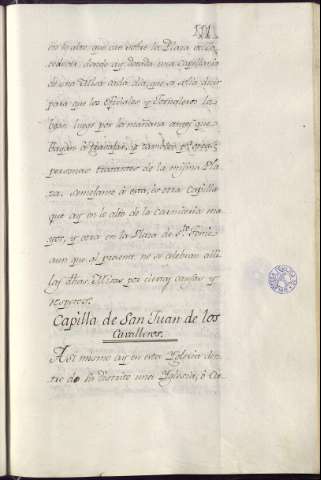 en lo alto, que cae sobre la Plaza de Zo
codover, donde ay dotada una Capillania
de una Missa cada dia, que se solia decir
para que los Oficiales y Jornaleros la
ôyan luego por la mañana antes que
vayan â trabajar, y tambien
personas tratantes de la misma Pla
za. Semejante â esta, es otra Capilla
que ay en lo alto de la Carniceria ma
yor, y otra en la Plaza de Sto. Thome
aun que al presente no se celebran alli
las dhas. Missas por ciertas causas y
respectos.
Capilla de San Juan de los
Cavalleros.
Asi mismo ay en esta Yglesia den
tro de su distrito una Yglesia, ô Ca-